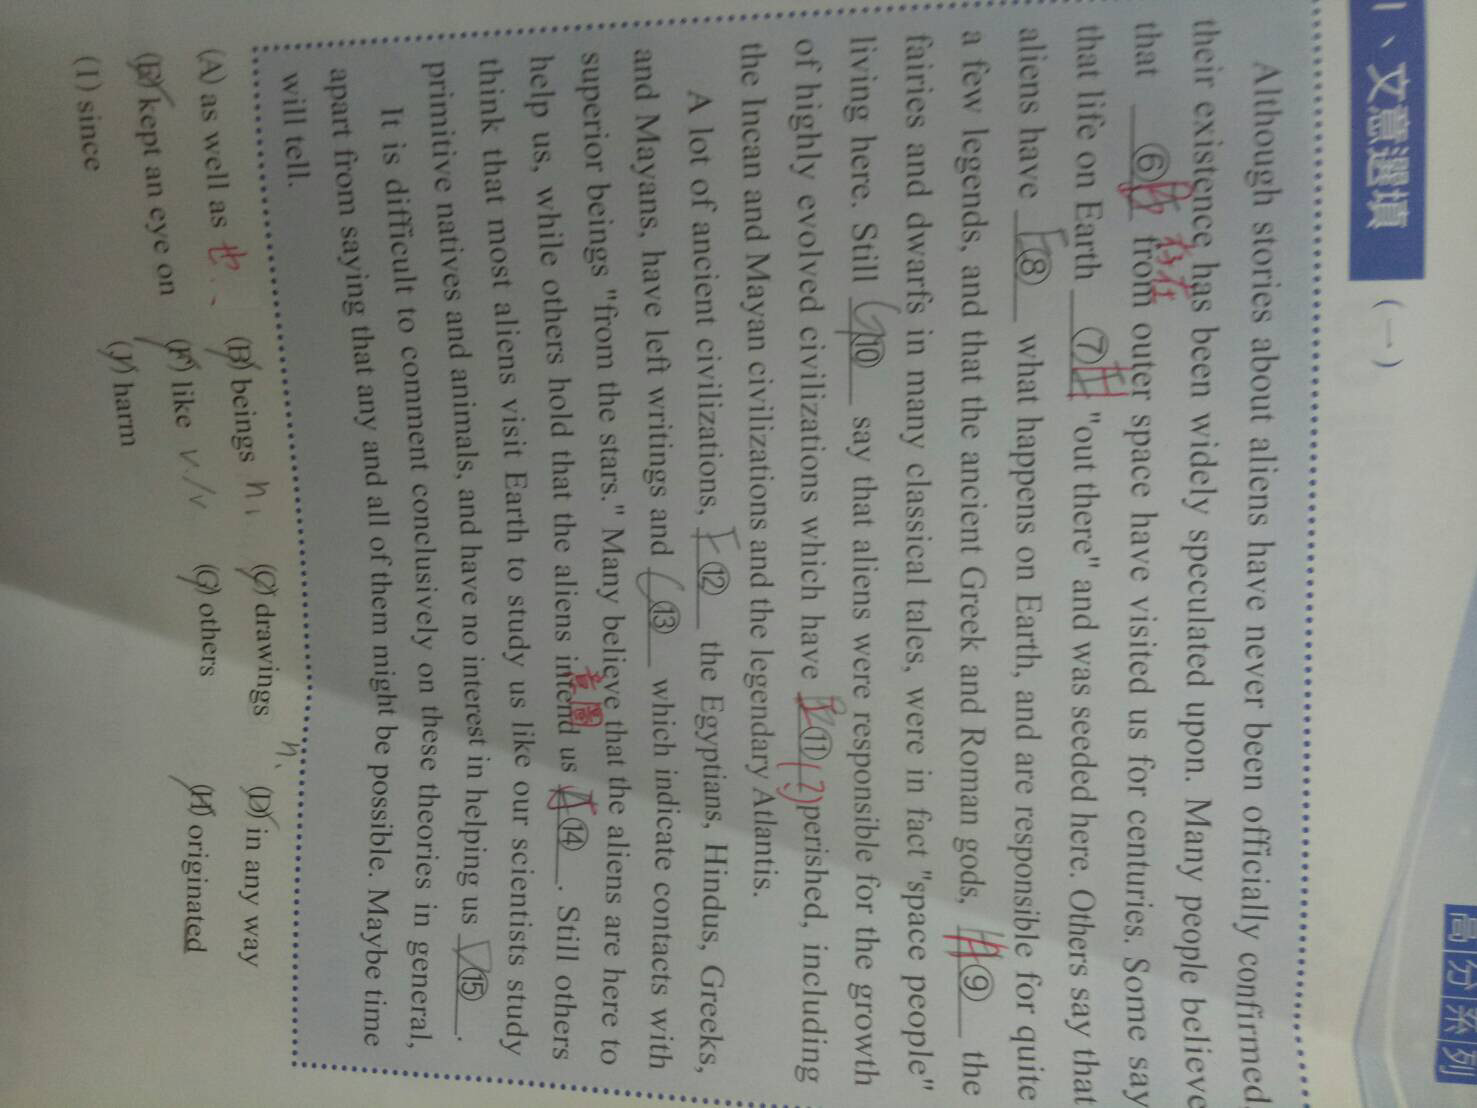 高分系列
、文意選填 (一)
Although stories about aliens have never been officially confirmed,
their existence has been widely speculated upon. Many people believe
存在
that ⑥ B from outer space have visited us for centuries. Some say
that life on Earth ⑦ H "out there" and was seeded here. Others say that
aliens have E ⑧ what happens on Earth, and are responsible for quite
a few legends, and that the ancient Greek and Roman gods, ⑨ the
fairies and dwarfs in many classical tales, were in fact "space people"
living here. Still G ⑩ say that aliens were responsible for the growth
of highly evolved civilizations which have ⑪ (?) perished, including
the Incan and Mayan civilizations and the legendary Atlantis.
A lot of ancient civilizations, F ⑫ the Egyptians, Hindus, Greeks,
and Mayans, have left writings and C ⑬ which indicate contacts with
superior beings "from the stars." Many believe that the aliens are here to
意圖
help us, while others hold that the aliens intend us ⑭. Still others
think that most aliens visit Earth to study us like our scientists study
primitive natives and animals, and have no interest in helping us D ⑮.
It is difficult to comment conclusively on these theories in general,
apart from saying that any and all of them might be possible. Maybe time
will tell.
n.
(A) as well as 也 (B) beings n (C) drawings (D) in any way
(E) kept an eye on (F) like v/v (G) others (H) originated
(I) since (J) harm